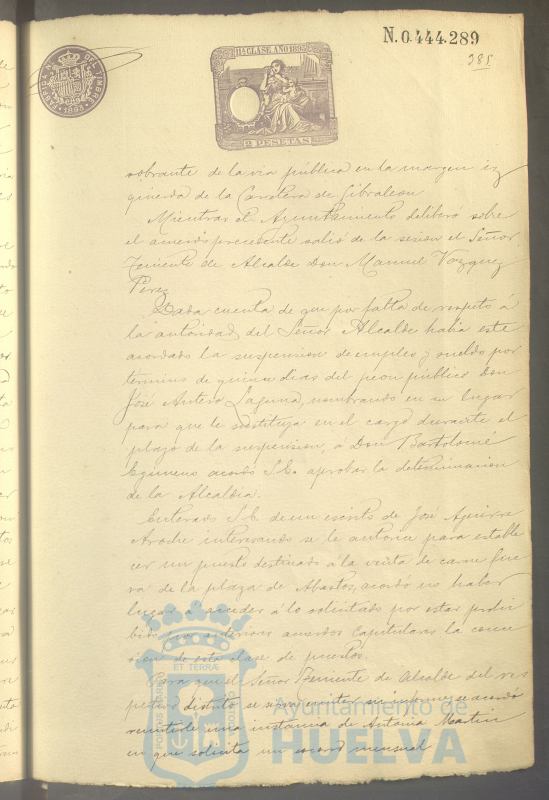 N. 0.444.289
385
11ª CLASE AÑO 1895
2 PESETAS
TIMBRE
1895
sobrante de la via pública en la margen iz
quierda de la Carretera de Gibraleon
Mientras el Ayuntamiento deliberó sobre
el acuerdo precedente salió de la sesion el Señor
Teniente de Alcalde Don Manuel Vazquez
Perez
Dada cuenta de que por falta de respeto á
la autoridad del Señor Alcalde habia este
acordado la suspension de empleo y sueldo por
termino de quince dias del peon público Don
José Antero Laguna, nombrando en su lugar
para que le sustituya en el cargo durante el
plazo de la suspension, á Don Bartolomé
Gimeno acordó S.E. aprobar la determinacion
de la Alcaldia.
Enterado S.E. de un escrito de José Aguirre
interesando se le autorice para estable
cer un puesto destinado á la venta de carne fue
ra de la plaza de Abastos, acordó no haber
lugar á acceder á lo solicitado por estar prohi
bido por anteriores acuerdos Capitulares la conce
sion de esta clase de puestos.
Para que el Señor Teniente de Alcalde del res
pectivo distrito se sirva emitir su informe se acordó
remitirle una instancia de Antonia Martin
en que solicita un socorro mensual
PORTUS MARIS
ET TERRÆ
CUSTODIA
Ayuntamiento de
HUELVA